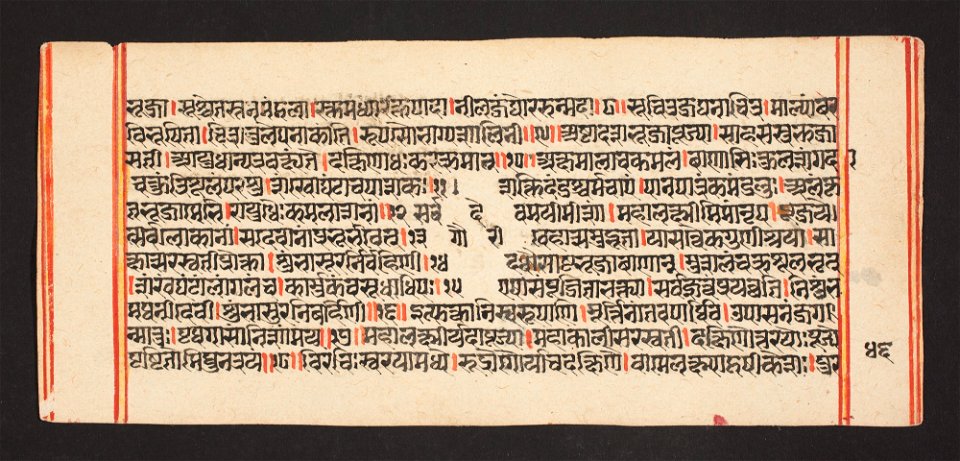 भुजा । सुश्वेतस्तनमंडला । रक्तमध्यारक्तपादा । नीलजंघोरुरुन्मदा ॥ ७ ॥ सुचित्रजघनाचित्र । माल्यांबर
विभूषिता । चित्रानुलेपनाकांति । रूपसौभाग्यशालिनी ॥ अष्टादशभुजापूज्या । सासहस्रभुजा
सती । आयुधान्यत्रवक्ष्यंते । दक्षिणाधःकरक्रमात् ॥ १० ॥ अक्षमालाचकमलं । बाणासिःकुलशंगदा
चक्रंत्रिशूलंपरशु । शंखोघंटाचपाशकः ॥ ११ । शक्तिदंडश्चर्मचापं । पानपात्रंकमंडलुः । अलंकृ
तभुजामेभि । रायुधैःकमलासनां ॥ १२ सर्व दे वमयीमीशां । महालक्ष्मीमिमांनृप । पूजये
त्सर्वलोकानां । सदेवानांप्रभुर्भवेत् ॥ १३ गौ री देहात्समुद्भूता । यासत्वैकगुणाश्रया । सा
क्षात्सरस्वतीप्रोक्ता । शुंभासुरनिबर्हिणी । १४ दधौचाष्टभुजाबाणान् । मुशलंचक्रशूलभृत्
। शंखंघंटांलांगलंच । कार्मुकंवसुधाधिपः । १५ एषासंपूजिताभक्त्या । सर्वज्ञत्वंप्रयच्छति । निशुंभ
मथनीदेवी । शुंभासुरनिबर्हिणी ॥ १६ ॥ इत्युक्तानिस्वरूपाणि । मूर्त्तिनांतवपार्थिव । उपासनंजग
न्मातुः । पृथगासांनिशामय ॥ १७ ॥ महालक्ष्मीर्यदापूज्या । महाकालीसरस्वती । दक्षिणोत्तरयोःपूज्ये
पृष्टतोमिथुनत्रयं ॥ १८ ॥ विरंचिःस्वरयामध्ये । रुद्रोगौर्याचदक्षिणे । वामेलक्ष्म्याहृषीकेशः । पुर
५६